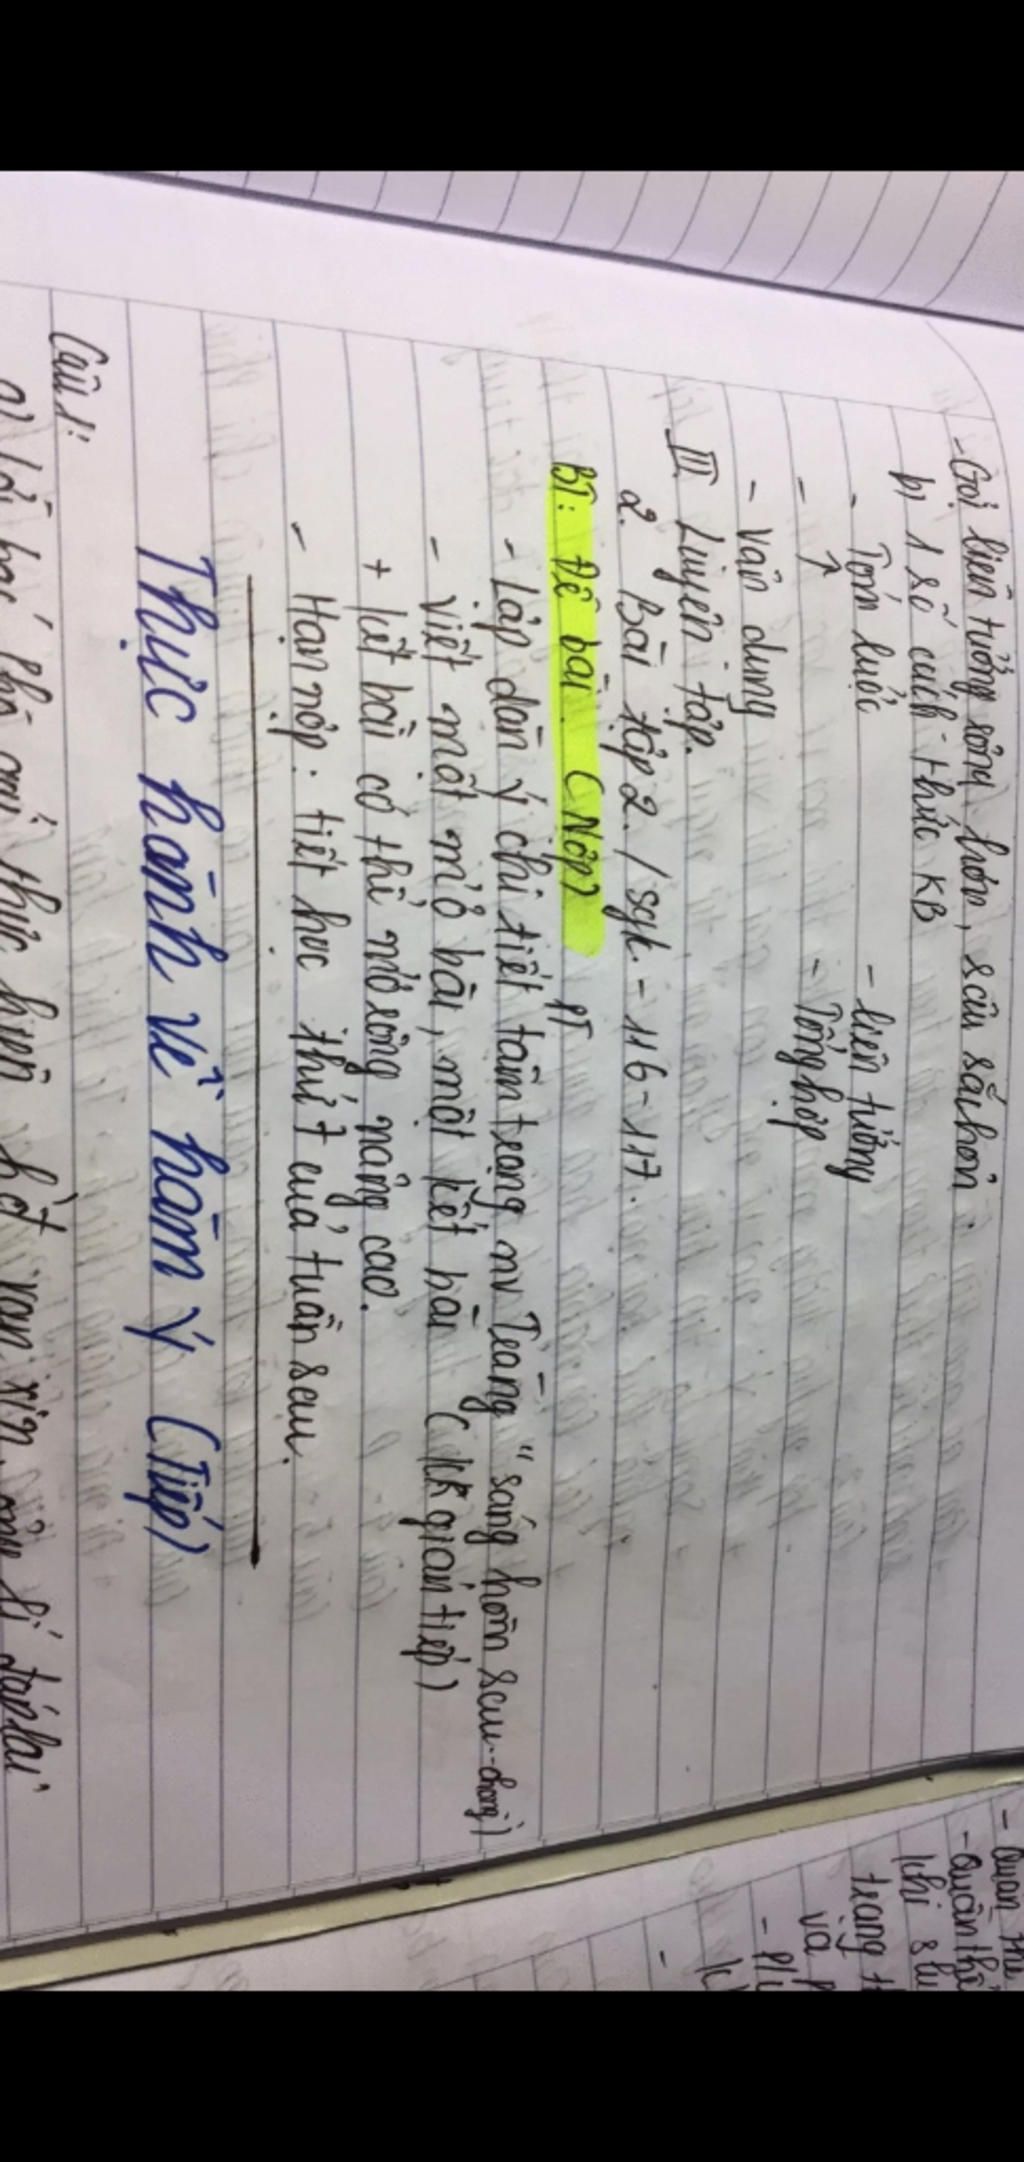 - Gợi liên tưởng rộng hơn, sâu sắc hơn.
b) 1 số cách thức KB
- Tóm lược - liên tưởng
- ↑ - Tổng hợp
- vận dụng
III. Luyện tập.
2. Bài tập 2 / sgk - 116 - 117.
BT: Đề bài. (Nộp)
- Lập dàn ý chi tiết PT tâm trạng nv Tràng "sáng hôm sau...
- viết một mở bài, một kết bài (KK gián tiếp)
+ kết bài có thể mở rộng nâng cao.
- Hạn nộp: tiết học thứ 7 của tuần sau.
Thực hành về hàm ý (Tiếp)
Câu 1:
a) Lời bác Phô gái thực hiện h/đ van xin, ông lí đáp lại
- quan
- quần thể
khi
trạng
và
-
-